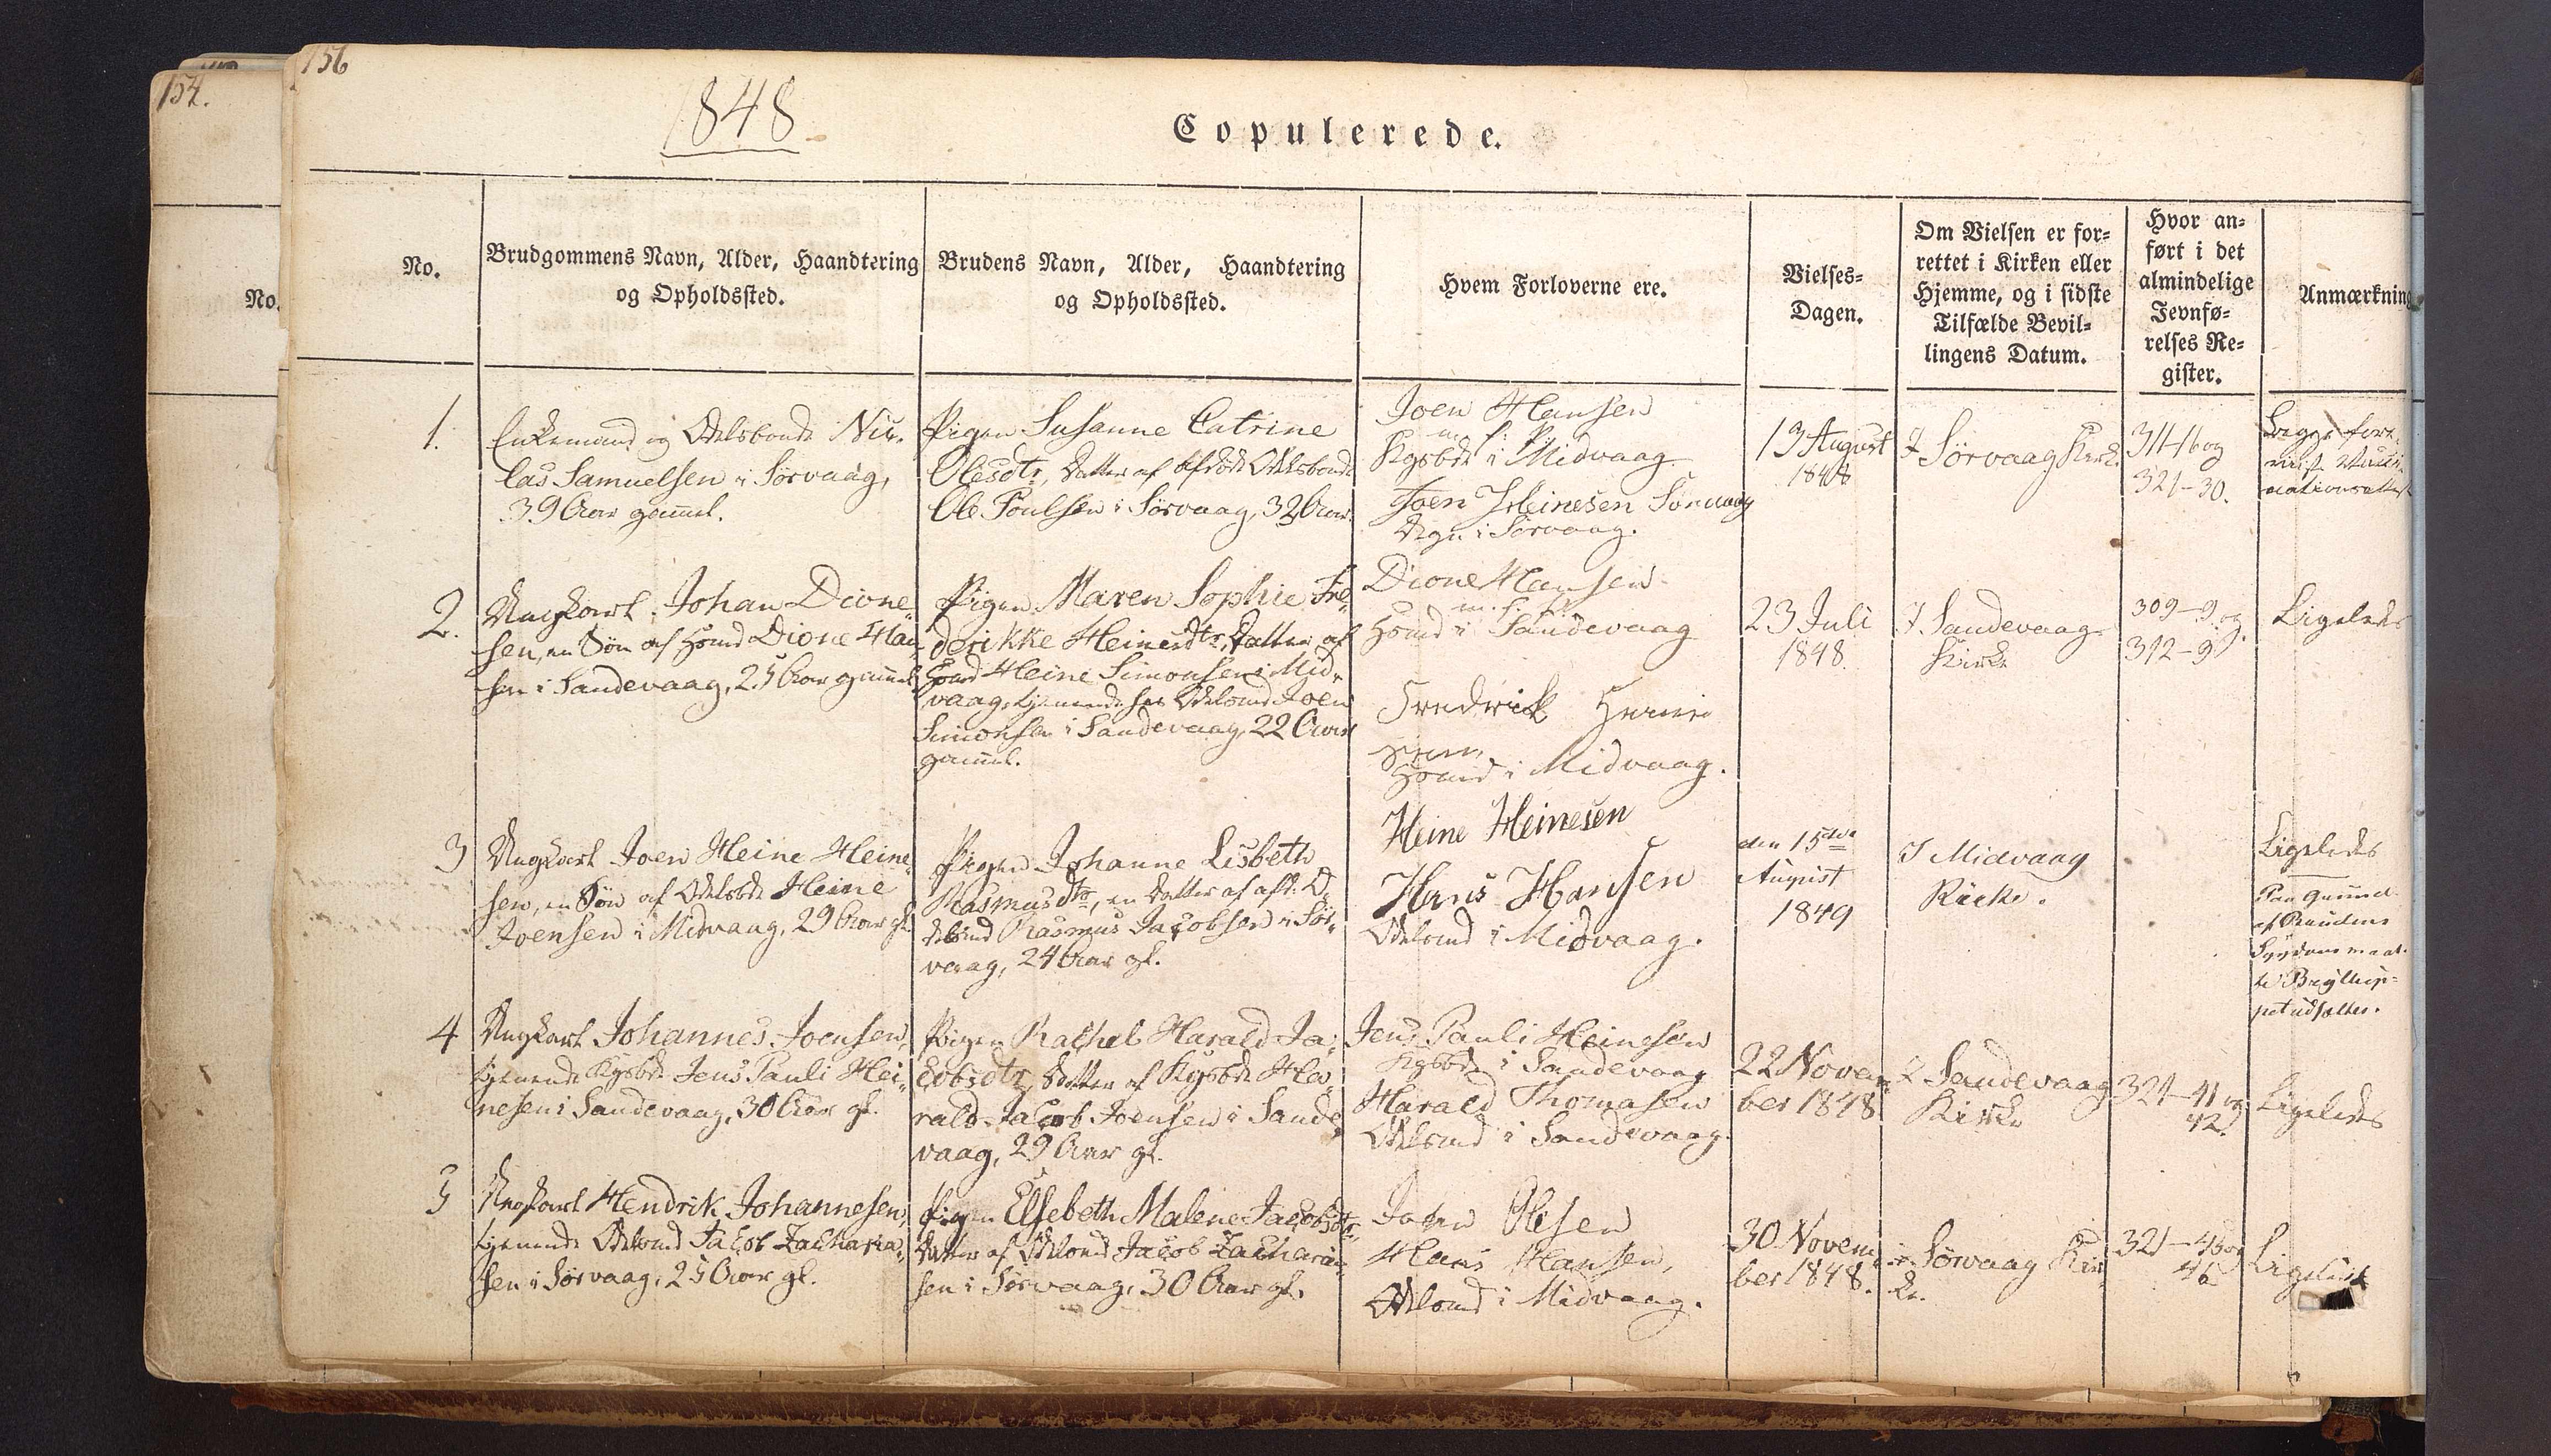 154.
156
1848
Copulerede.
No.
No.
Brudgommens Navn, Alder, Haandtering
og Opholdssted.
Brudens Navn, Alder, Haandtering
og Opholdssted.
Hvem Forloverne ere.
Vielses-
Dagen.
Om Vielsen er for-
rettet i Kirken eller
Hjemme, og i sidste
Tilfælde Bevil-
lingens Datum.
Hvor an-
ført i det
almindelige
Jevnfø-
relses Re-
gister.
Anmærkning
1.
Enkemand og Odelsbonde Nic-
las Samuelsen i Sörvaag,
39 Aar gammel.
Pigen Susanne Catrine
Olesdtr, Datter af afdöde Odelsbonde
Ole Poulsen i Sörvaag, 32 Aar.
Joen Hansen
m. f. P.
Kgsbde i Midvaag
Joen Heinesen Sörvaag
Degn i Sörvaag.
13 August
1848
I Sörvaag Kirke
314-16 og
321-30.
Begge fore-
viist Vacci-
nationsattest
2.
Ungkarl Johan Dione-
sen, en Sön af Hsmd Dione Han-
sen i Sandevaag, 25 Aar gammel
Pigen Maren Sophie Fre-
derikke Heinesdtr, Datter af
Hsmd Heine Simonsen i Mid-
vaag, tjenende hos Odelsmd Joen
Simonsen i Sandevaag, 22 Aar
gammel.
Dione Hansen
m. f. P.
Hsmd i Sandevaag
Fredrick
Hsmd i Midvaag.
23 Juli
1848.
I Sandevaag
Kirke
309-9 og
312-9
Ligeledes
3
Ungkarl Joen Heine Heine-
sen, en Sön af Odelsbde Heine
Joensen i Midvaag, 29 Aar gl.
Pigen Johanne Lisbeth
Rasmusdtr, en Datter af afd. O-
delsmd Rasmus Jacobsen i Sör-
vaag, 24 Aar gl.
Heine Heinesen
Hans Hansen
Odelsmd i Midvaag.
den 15de
August
1849
I Midvaag
Kirke.
Ligeledes
Paa Grund
af Brudens
Sygdom maat-
te Bryllup-
pet udsættes.
4
Ungkarl Johannes Joensen,
tjenende Kgsbde Jens Pauli Hei-
nesen i Sandevaag, 30 Aar gl.
Pigen Rachel Harald Ja-
cobsdtr, Datter af Kgsbde Ha-
rald Jacob Joensen i Sande-
vaag, 29 Aar gl.
Jens Pauli Heinesen
Kgsbde i Sandevaag
Harald Thomasen
Odelsmd i Sandevaag.
22 Novem-
ber 1848
I Sandevaag
Kirke
321-41 og
42.
Ligeledes
5
Ungkarl Hendrik Johannesen,
tjenende Odelsmd Jacob Zacharia-
sen i Sörvaag, 25 Aar gl.
Pigen Elsebeth Malene Jacobsdtr,
Datter af Odelsmd Jacob Zacharia-
sen i Sörvaag, 30 Aar gl.
Joen Olesen
Hans Hansen,
Odelsmd i Midvaag.
30 Novem-
ber 1848.
i Sörvaag Kir-
ke.
321-45 og
46
Ligeledes